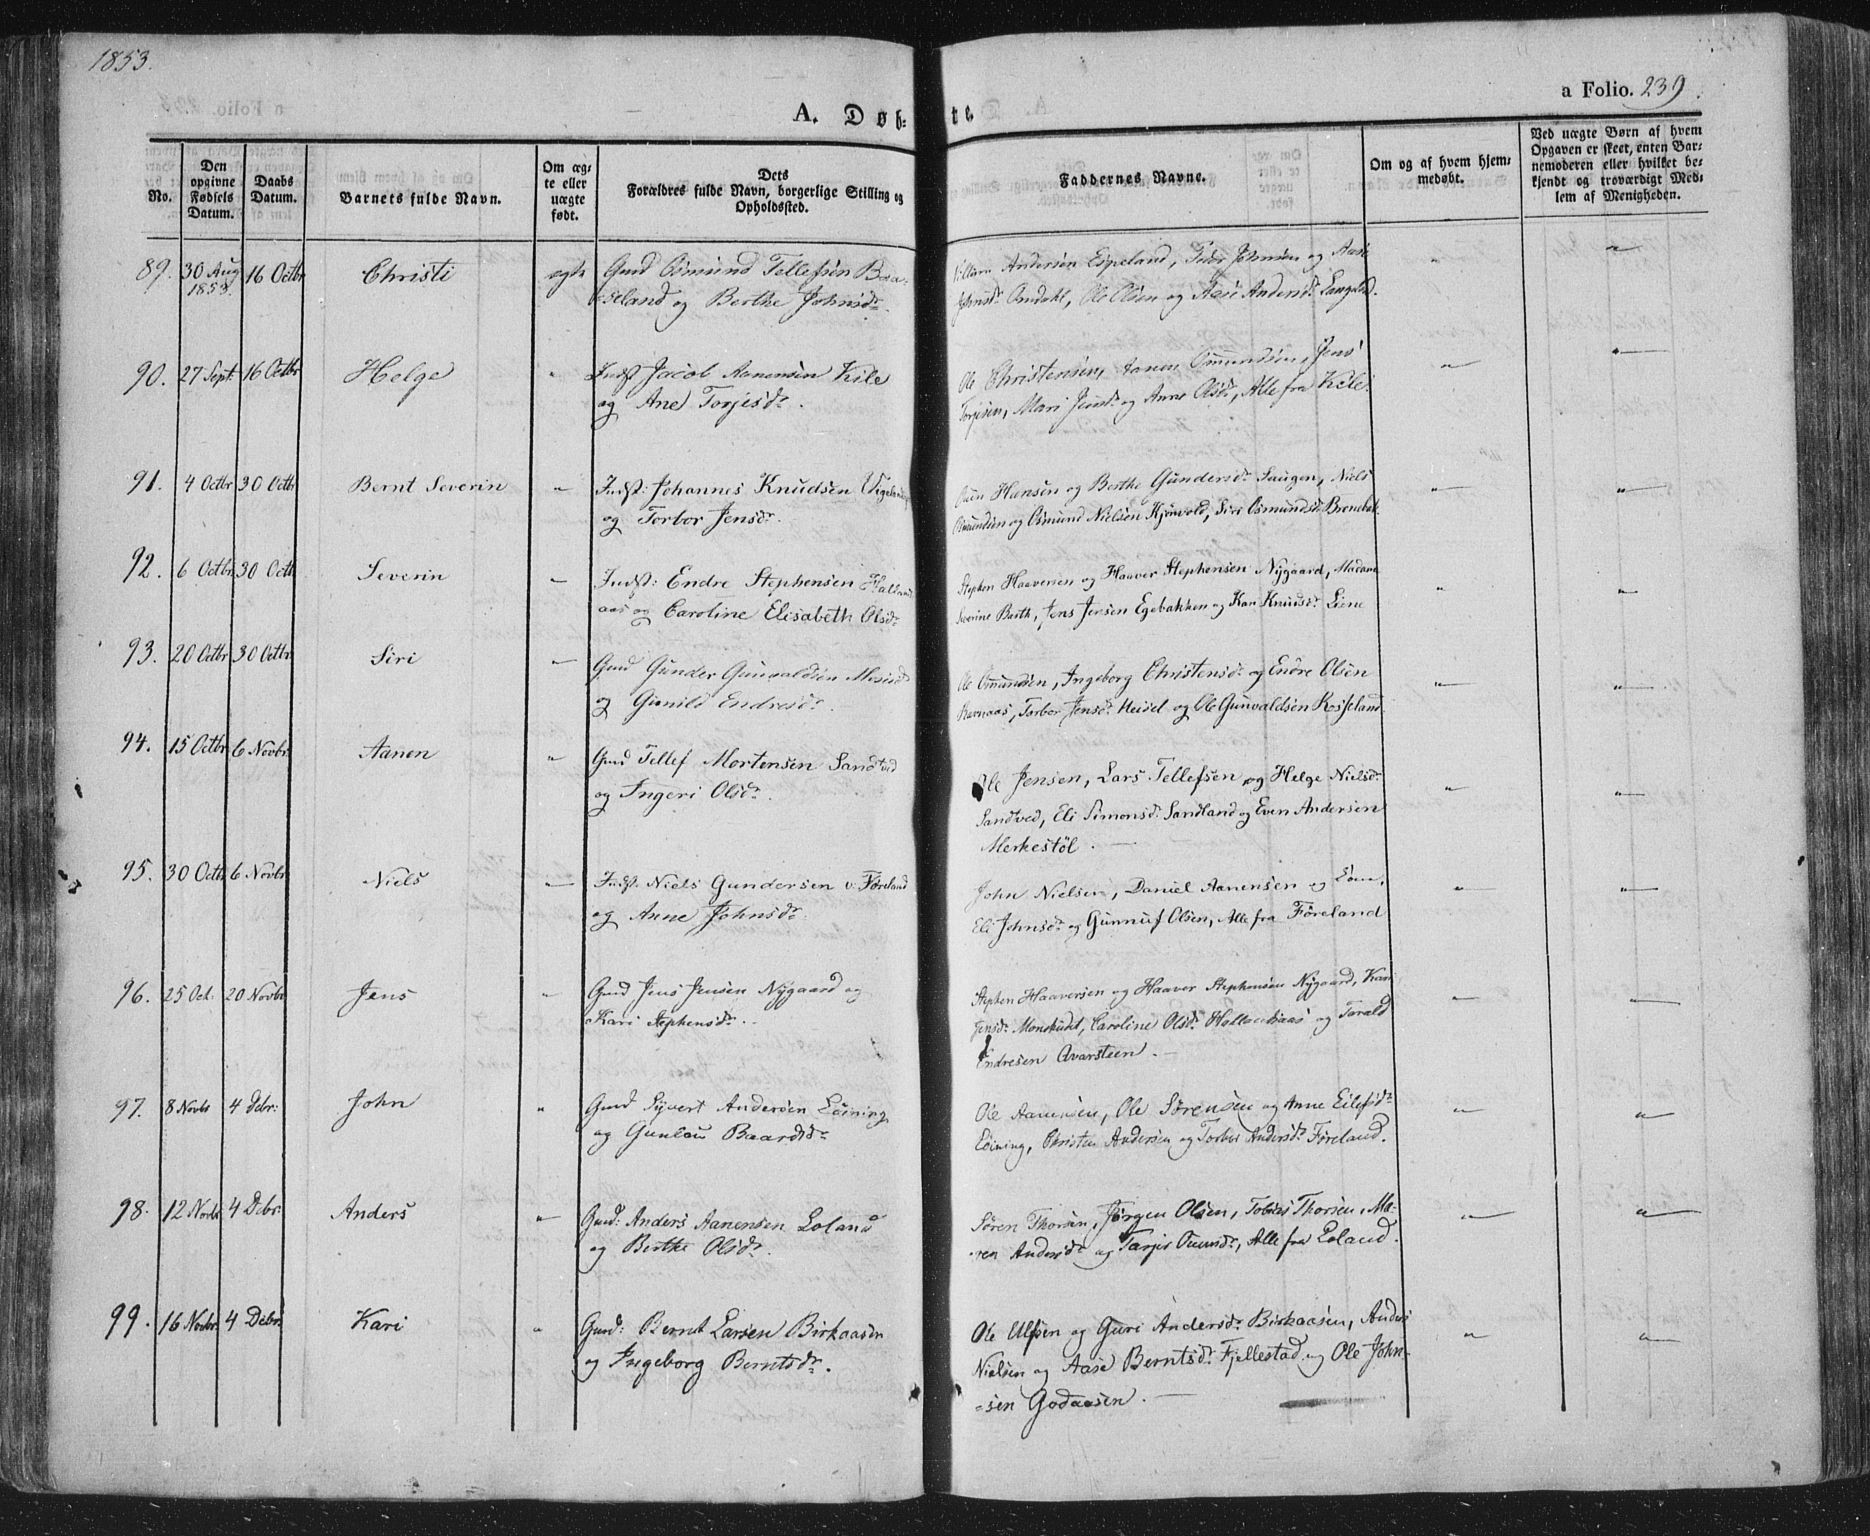 1853.
a Folio. 239
A. Døbte.
No.
Den opgivne Fødsels Datum.
Daabs Datum.
Barnets fulde Navn.
Om ægte eller uægte født.
Dets Forældres fulde Navn, borgerlige Stilling og Opholdssted.
Faddernes Navne.
Om og af hvem hjemmedøbt.
Ved uægte Børn af hvem Opgaven er skeet, enten Barnemoderen eller hvilket bekjendt og troværdigt Medlem af Menigheden.
89. 30 Aug 1853. 16 Octbr Christi ægte Gmd Osmund Tellefsen
og Berthe Johnsdr.
Andersen Espeland, Peder Johnsen og Aase
Johnsdr. Omdahl, Ole Olsen og Aase Andersdr.
90. 27 Sept. 16 Octbr Helge " Indst Jacob Aanensen Kile
og Ane Torjesdr.
Ole Christensen, Aanen Omundsen, Jens
Torjesen, Mari Jensdr. og Anne Olsdr, Alle fra Kile.
91. 4 Octbr 30 Octbr Bernt Severin " Indst: Johannes Knudsen
og Torbor Jensdr.
Hansen og Berthe Gundersdr. Saugen, Niels
Osmundsen og Osmund Nielsen, Siri Osmundsd.
92. 6 Octbr 30 Octb Severin " Indst: Endre Stephensen Halland
aas og Caroline Elisabeth Olsdr.
Stephen Haaversen og Haaver Stephensen Nygaard, Madame
Severine Barth, Jens Jensen Egebakken og Kari Knudsdr. Liene
93. 20 Octbr 30 Octbr. Siri " Gmd Gunder Gunvaldsen
og Gunild Endresdr.
Ole Omundsen, Ingeborg Christensdr. og Endre Olsen
Ravnaas, Torbor Jensdr. Heisel og Ole Gunvaldsen Rosseland
94. 15 Octbr 6 Novbr. Aanen " Gmd Tellef Mortensen Sandved
og Ingeri Olsdr.
Ole Jensen, Lars Tellefsen og Helge Nielsdr.
Sandved, Eli Simonsd: Sandland og Even Andersen
Merkestøl.
95. 30 Octb 6 Novbr. Niels " Indst. Niels Gundersen v. Føreland
og Anne Johnsdr.
John Nielsen, Daniel Aanensen og
Eli Johnsdr og Gunnuf Olsen, Alle fra Føreland
96. 25 Oct. 20 Novbr Jens " Gmd Jens Jensen Nygaard og
Kari Stephensdr.
Stephen Haaversen og Haaver Stephensen Nygaard, Kari
Jensdr., Caroline Olsdr. og Torald
Endresen Qvarsteen.
97. 8 Novbr 4 Debr: John " Gmd Syvert Andersen Løining
og Gunlau Baardsdr
Ole Aanensen, Ole Sørensen og Anne Eilefsdr.
Løining, Christen Andersen og Torbor Andersdr. Føreland.
98. 12 Novb 4 Debr. Anders " Gmd: Anders Aanensen Loland
og Berthe Olsdr.
Søren Thorsen, Jørgen Olsen, Tobias Thorsen, Ma-
ren Andersdr og, Alle fra Loland.
99. 16 Novbr. 4 Debr. Kari " Gmd: Bernt Larsen Birkaasen
og Ingeborg Berntsdr.
Ole Ulfsen og Guri Andersdr. Birkaasen, Anders
Nielsen og Aase Berntsdr. Fjellestad og Ole John-
sen Godaasen.